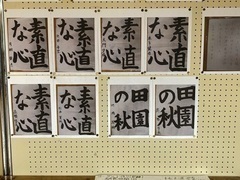 素直
な心
素直
な心
素直
な心
素直
な心
素直
な心
素直
な心
田園
の秋
田園
の秋